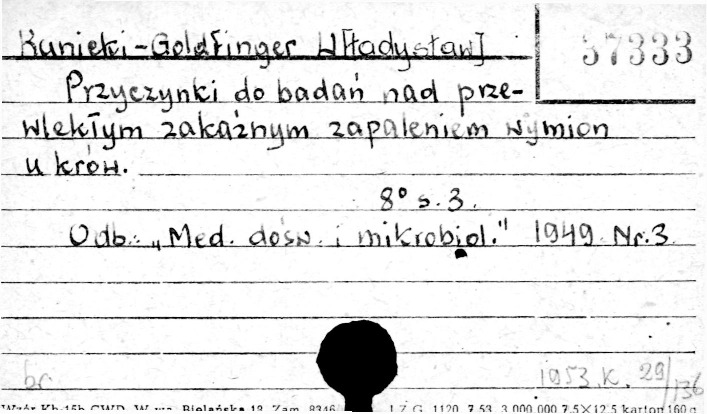 Kunicki-Goldfinger W[ładysław]
57333
Przyczynki do badań nad prze-
wlekłym zakaźnym zapaleniem wymion
u krów.
8° s. 3.
Odb.: „Med. dośw. i mikrobiol." 1949 Nr. 3
br
1953. K. 29/136
Wzór Kb-15b CWD, W-wa, Bielańska 18. Zam. 8346 L.Z.G. 1120 7.53 3.000.000 7,5×12,5 karton 160 g